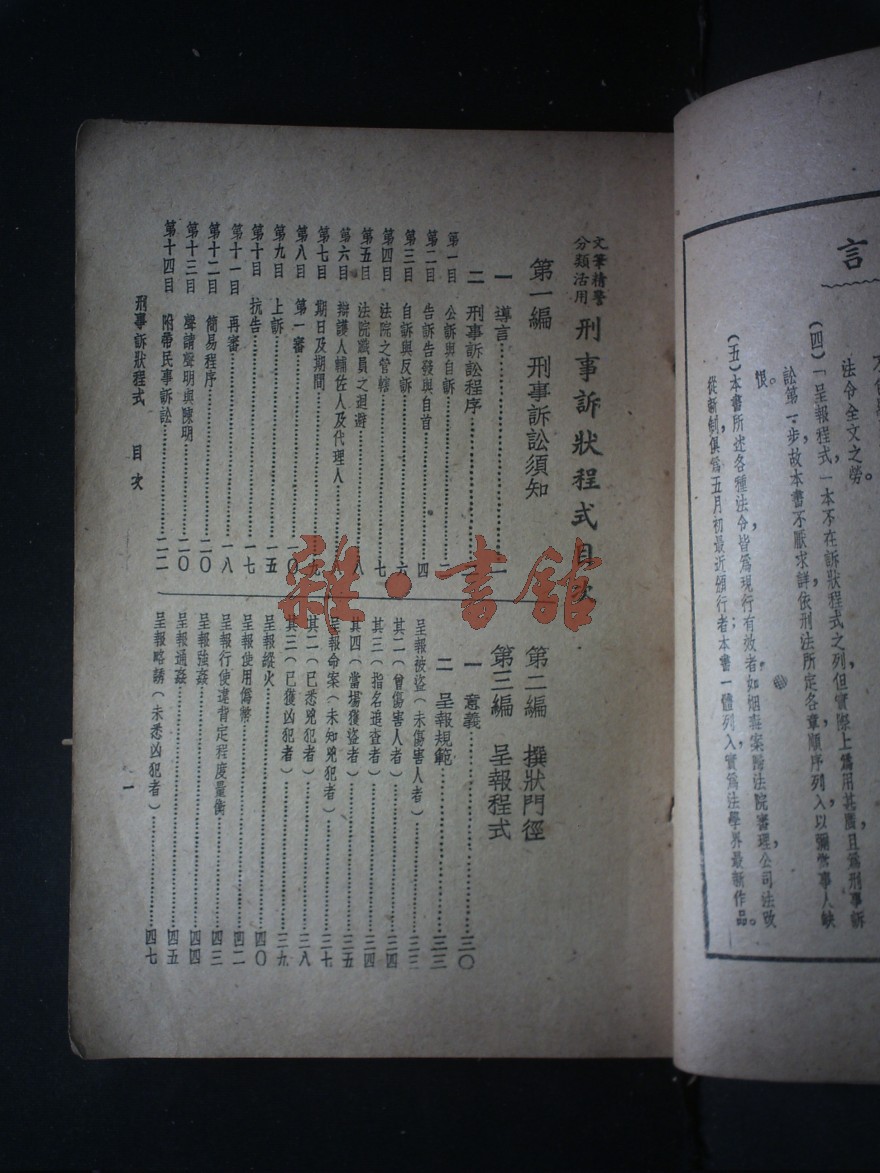 言
法令全文之勞。
(四)「呈報程式」一本不在訴狀程式之列但實際上爲用甚廣且爲刑事訴
訟第一步故本書不厭求詳依刑法所定各章順序列入以彌當事人缺
恨。
(五)本書所述各種法令皆爲現行有效者如烟毒案歸法院審理公司法改
從新制俱爲五月初最近頒行者本書一體列入實爲法學界最新作品。
文筆精警
分類活用
刑事訴狀程式目次
第一編 刑事訴訟須知
一 導言………一
二 刑事訴訟程序………
第一目 公訴與自訴………二
第二目 告訴告發與自首………四
第三目 自訴與反訴………六
第四目 法院之管轄………七
第五目 法院職員之迴避………八
第六目 辯護人輔佐人及代理人………八
第七目 期日及期間………九
第八目 第一審………一〇
第九目 上訴………一五
第十目 抗告………一七
第十一目 再審………一八
第十二目 簡易程序………二〇
第十三目 聲請聲明與陳明………二〇
第十四目 附帶民事訴訟………二二
第二編 撰狀門徑
第三編 呈報程式
一 意義………三〇
二 呈報規範………三三
呈報被盜(未傷害人者)………三三
其二(曾傷害人者)………三四
其三(指名追查者)………三四
其四(當場獲盜者)………三五
呈報命案(未知兇犯者)………三七
其二(已悉兇犯者)………三八
其三(已獲凶犯者)………三九
呈報縱火………四〇
呈報使用偽幣………四二
呈報行使違背定程度量衡………四三
呈報強姦………四四
呈報通姦………四五
呈報略誘(未悉凶犯者)………四七
刑事訴狀程式 目次 一
雜·書館